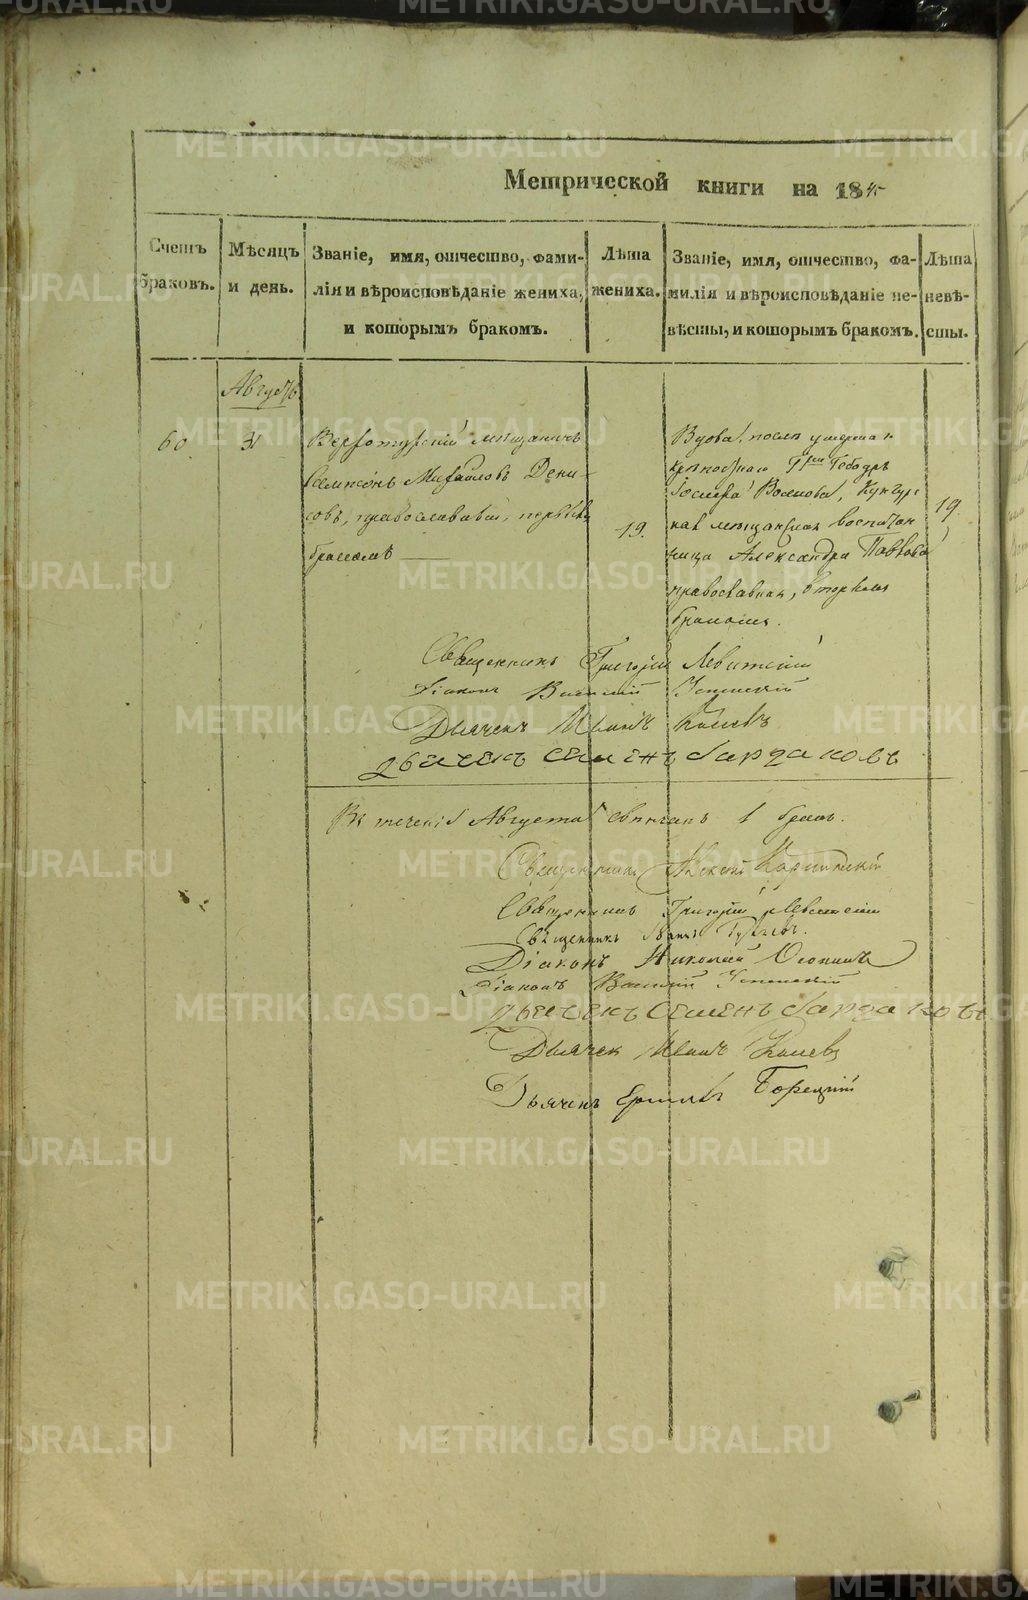 Метрической книги на 184
Счетъ браковъ.
Мѣсяцъ и день.
Званіе, имя, отчество, фами-
лія и вѣроисповѣданіе жениха,
и которымъ бракомъ.
Лѣта
жениха.
Званіе, имя, отчество, фа-
милія и вѣроисповѣданіе не-
вѣсты, и которымъ бракомъ.
Лѣта
невѣ-
сты.
Августъ
60
Верхотурскій мѣщанинъ
Сампсонъ Михайловъ Дени-
совъ, православный, первымъ
бракомъ
19.
Вдова, послѣ умершаго
Кунгур-
ская мѣщанская воспитан
ница Александра Павлова
православная, вторымъ
бракомъ.
19
Священникъ Григорій Левитскій
Діаконъ Василій Успенскій
Дьячекъ Иванъ
Дьячекъ Семенъ Бардаковъ
Въ теченіи Августа вѣнчанъ 1 бракъ.
Священникъ Алексій
Священникъ Григорій Левитскій
Священникъ Іоаннъ
Діаконъ Николай
Діаконъ Василій Успенскій
Дьячекъ Семенъ Бардаковъ
Дьячек Иванъ
Дьячекъ
METRIKI.GASO-URAL.RU